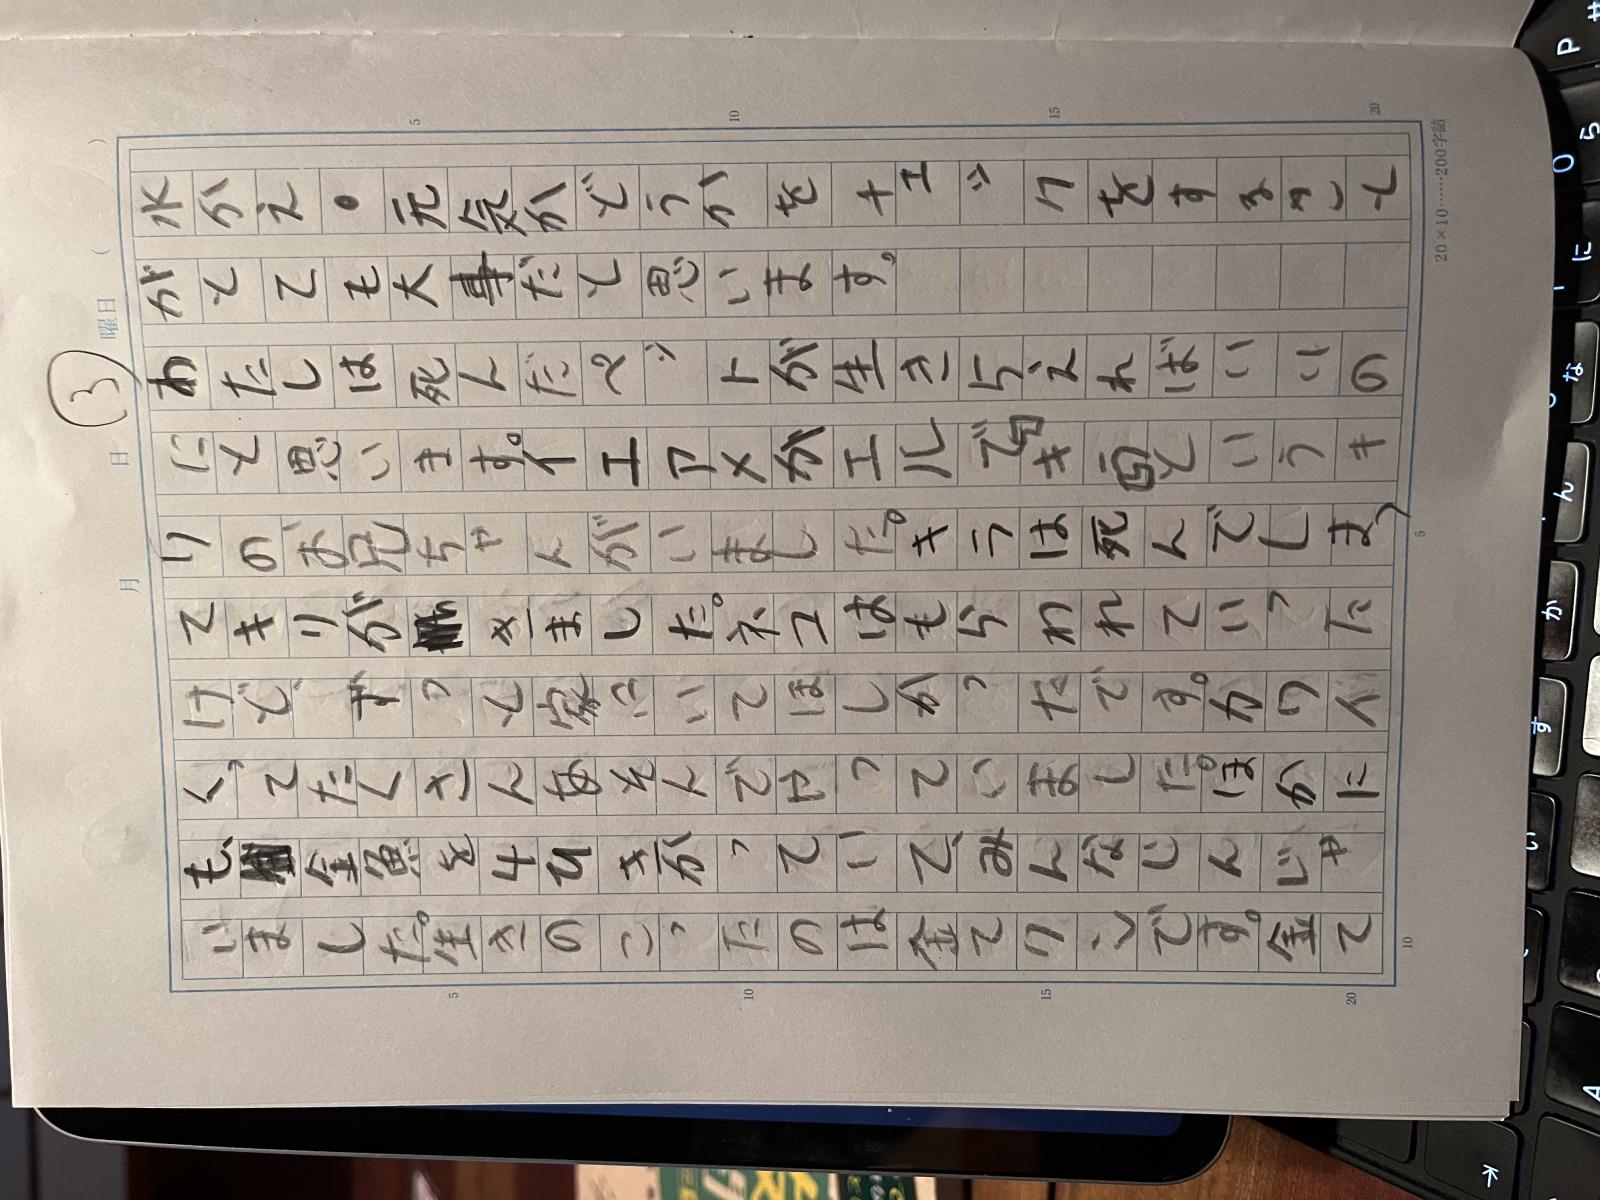 水かえ。元気かどうかをチエックをすること
がとても大事だと思います。
わたしは死んだペットが生きらえればいいの
にと思います。イエアメガエルでキというキ
リのお兄ちゃんがいました。キウは死んでしまっ
てキリがきました。ネコはもらわれていった
けど、ずっと家にいてほしかったです。カワイ
くってたくさんあそんでやっていました。ほかに
も、金魚を4ひきかっていて、みんなじんじゃ
いました。生きのこったのは金てリンです。金て
月 日 ( 曜日 )
③
5
10
15
20
20×10……200字詰